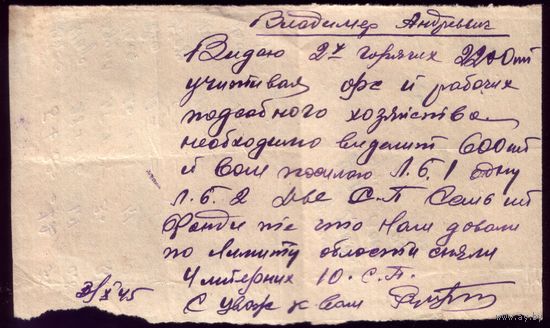 Владимер Андревич
Видаю 2х горячих 2200 шт
учитивая орс и рабочих
подсобного хозяйства
необходимо виделит 600 шт
и Вам посилаю Л.Б. 1 одну
Л.Б. 2 две С.П Семь шт
Фонди те что нам довали
по Лимиту области сняли
4 литерних 10. С.П.
3/X 45
С уваж к вам
www.ay.by